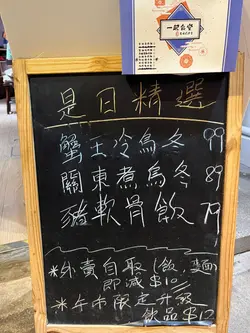 一起食堂
是日精選
蟹王冷烏冬 99
關東煮烏冬 89
豬軟骨飯 79
*外賣自取(飯,麵)
即減$10
*午市限定升級
飲品$12